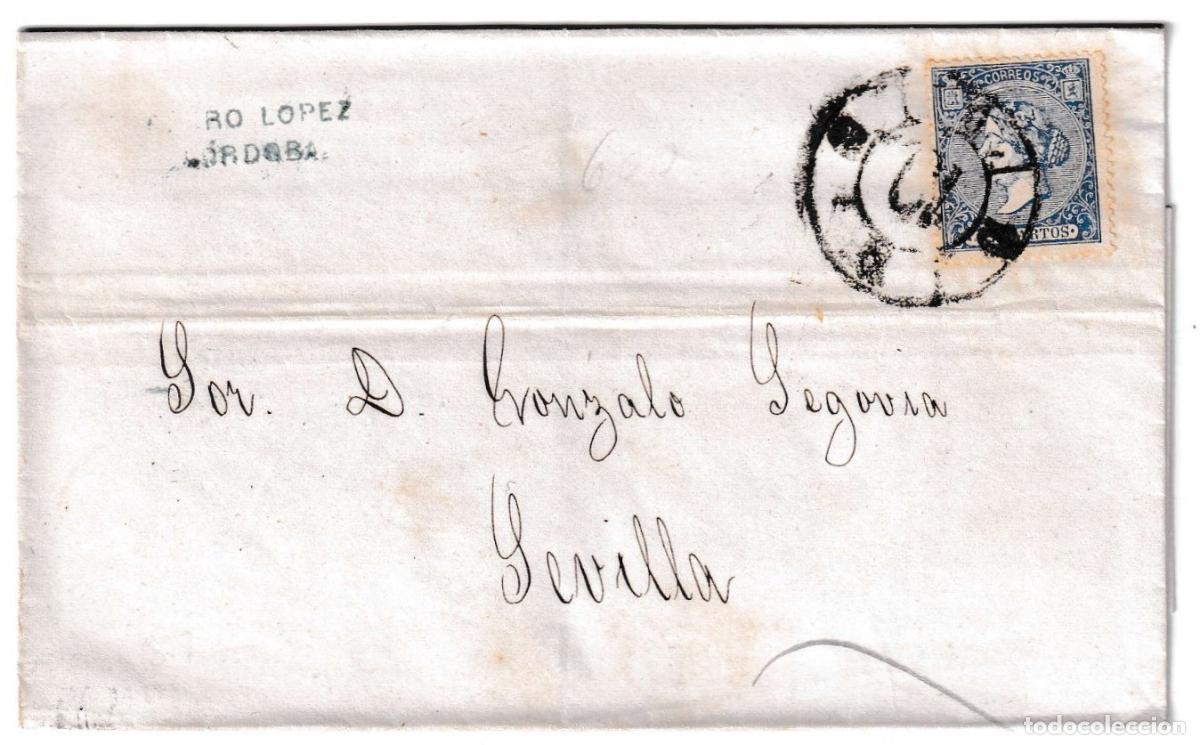 RO LOPEZ
CÓRDOBA.
CORREOS
Sor. D. Gonzalo Segovia
Sevilla
todocoleccion